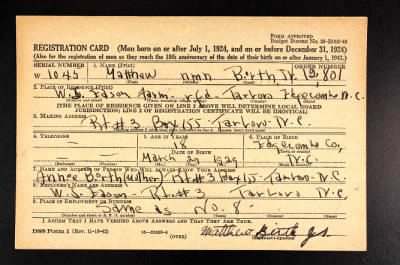 FORM APPROVED
Budget Bureau No. 33-R012-42
REGISTRATION CARD (Men born on or after July 1, 1924, and on or before December 31, 1924)
(Also for the registration of men as they reach the 18th anniversary of the date of their birth on or after January 1, 1925.)
SERIAL NUMBER 1. NAME (Print) ORDER NUMBER
W 1045 Matthew nmn Birth Jr. 12,801
2. PLACE OF RESIDENCE (Print)
W. S. Eason Farm Tarboro Edgecombe N.C.
(THE PLACE OF RESIDENCE GIVEN ON LINE 2 ABOVE WILL DETERMINE LOCAL BOARD
JURISDICTION; LINE 2 OF REGISTRATION CERTIFICATE WILL BE IDENTICAL)
3. MAILING ADDRESS
Rt #3 Box 155 - Tarboro N.C.
4. TELEPHONE 5. AGE IN YEARS 6. PLACE OF BIRTH
18 Edgecombe Co,
DATE OF BIRTH
March N.C.
7. NAME AND ADDRESS OF PERSON WHO WILL ALWAYS KNOW YOUR ADDRESS
Annie Birth (Mother) Rt #3 Box 155 - Tarboro N.C.
8. EMPLOYER'S NAME AND ADDRESS
W. S. Eason Rt. #3 Tarboro N.C.
9. PLACE OF EMPLOYMENT OR BUSINESS
Same as No. 8
I AFFIRM THAT I HAVE VERIFIED ABOVE ANSWERS AND THAT THEY ARE TRUE.
DSS Form 1 (Rev. 11-16-42) (OVER) Matthew Birth Jr.
(Registrant's signature)